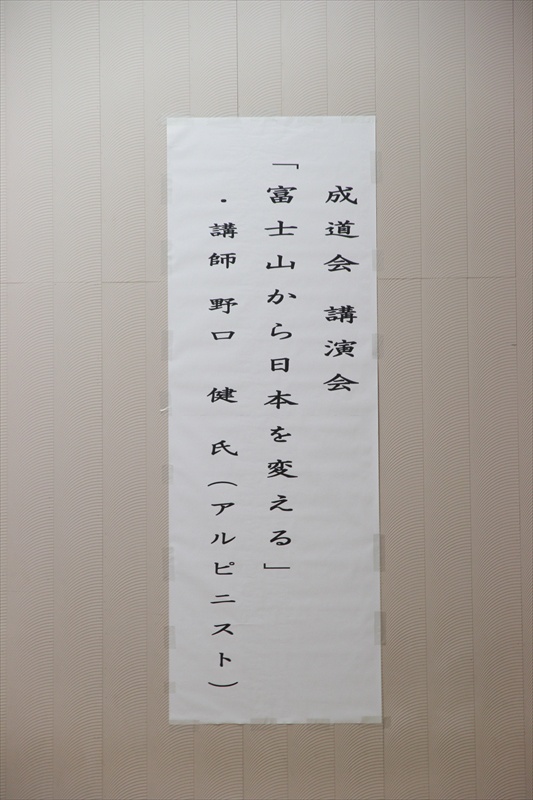 成道会 講演会
「富士山から日本を変える」
・講師 野口 健 氏(アルピニスト)